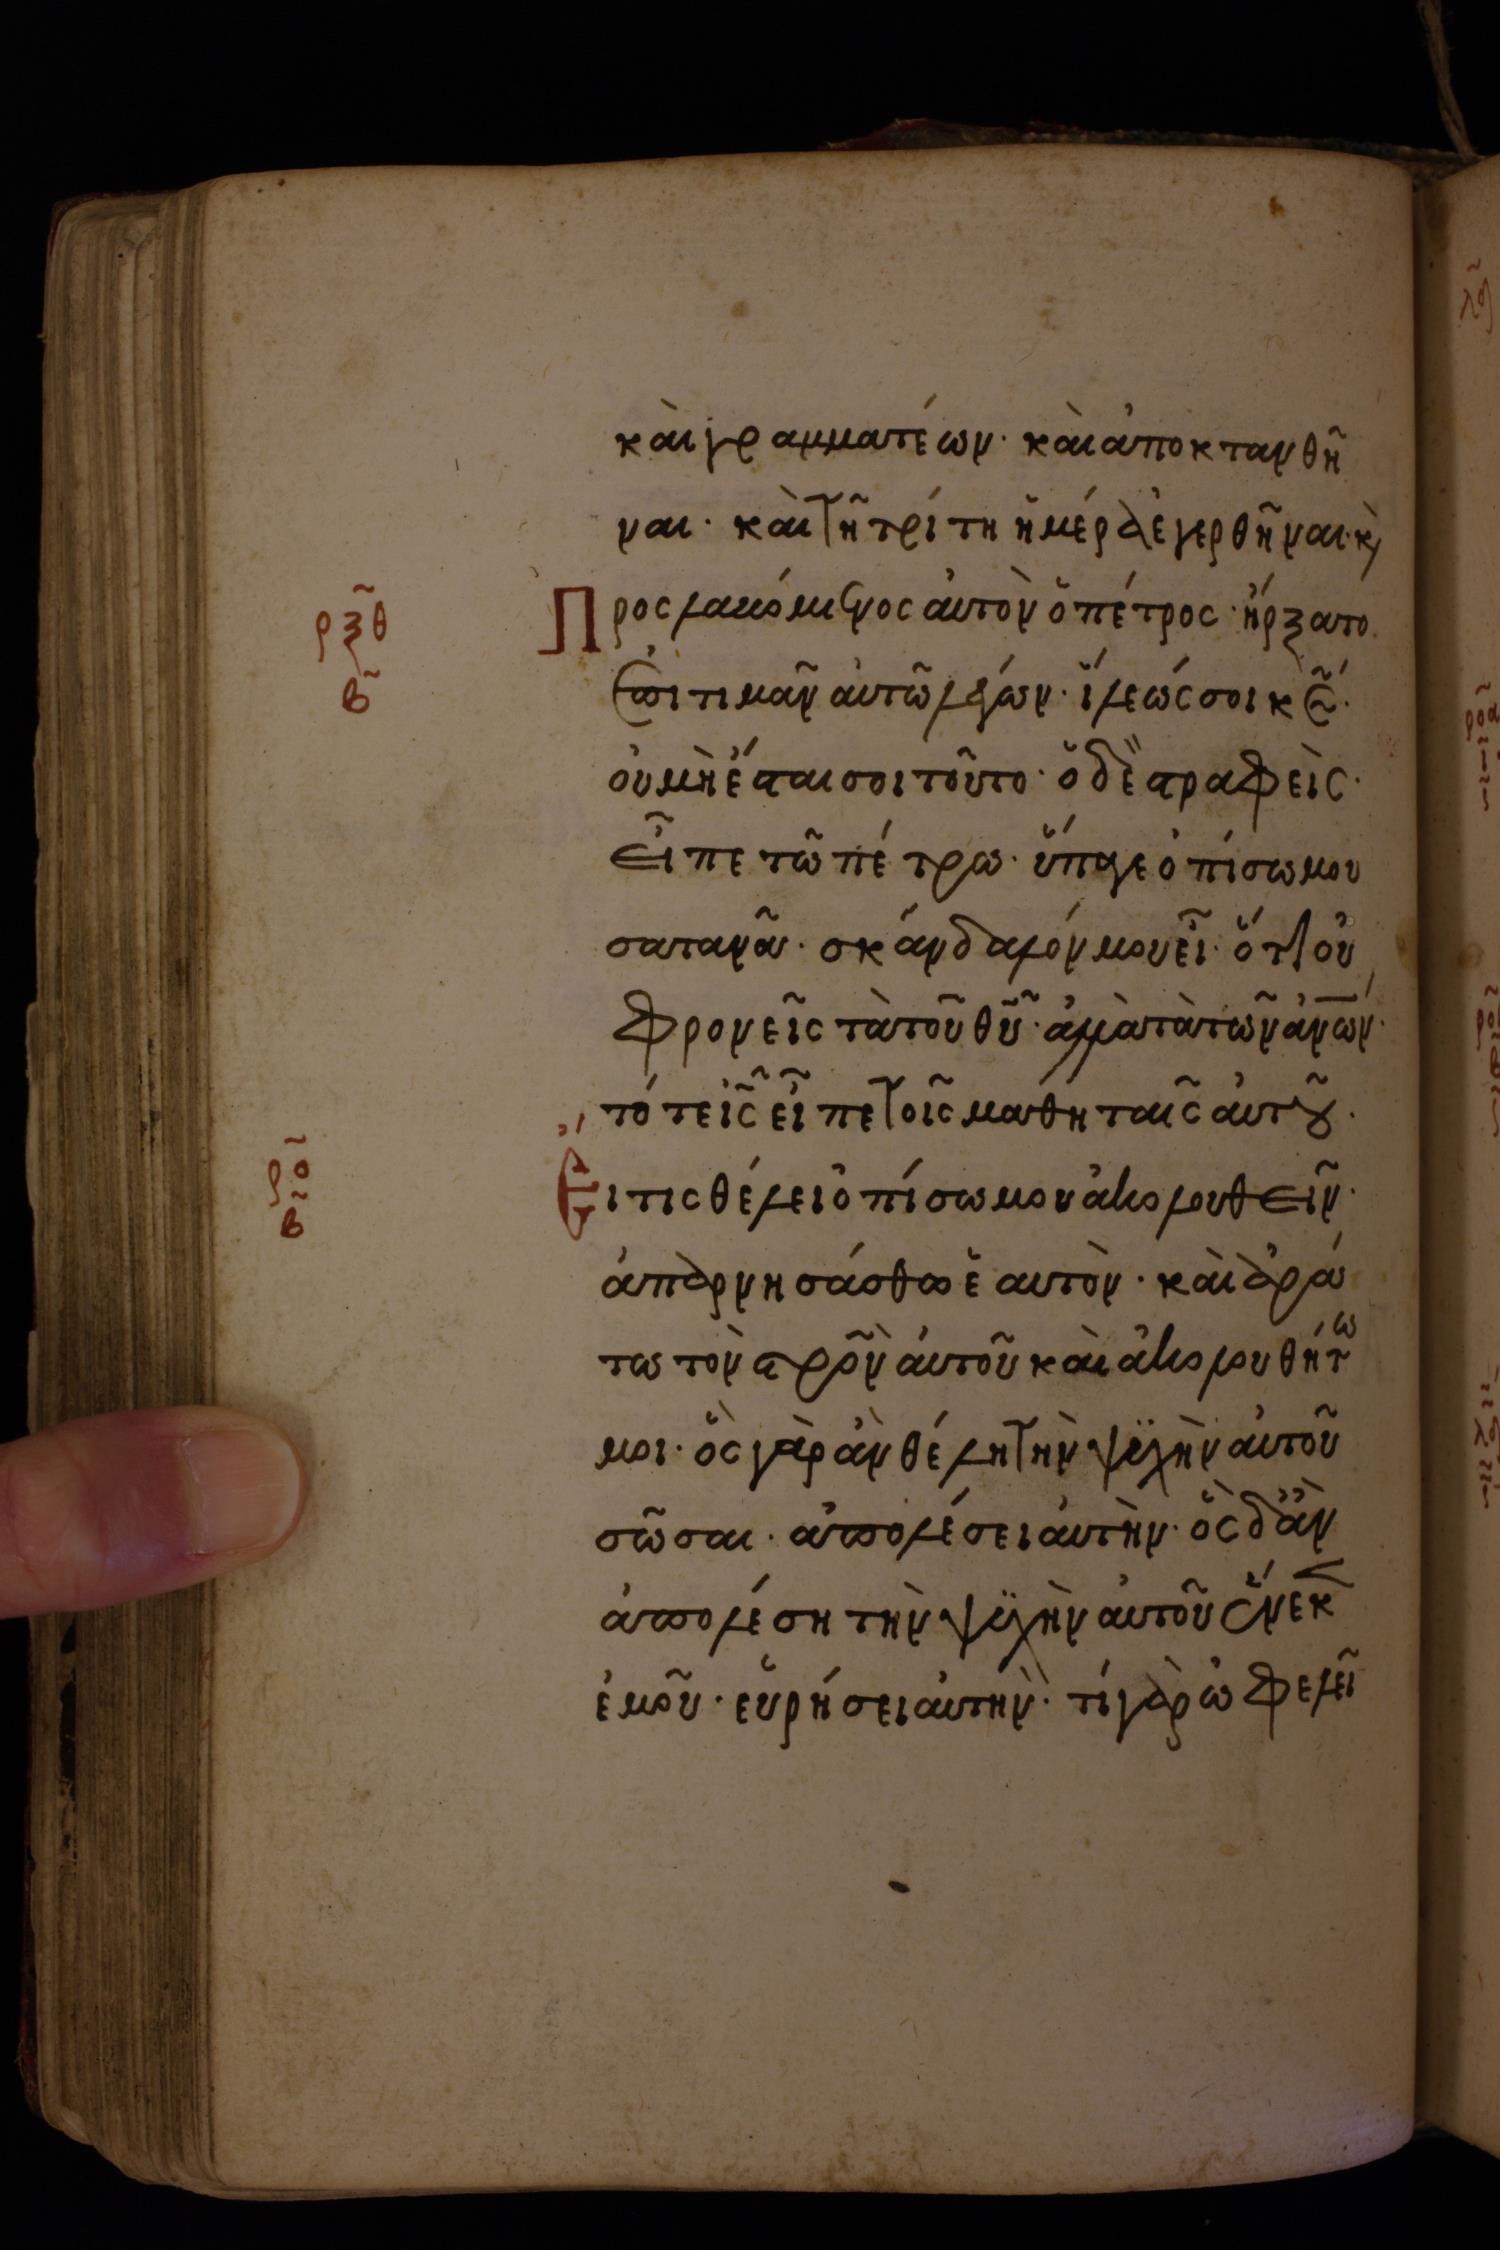 καὶ γραμματέων· καὶ ἀποκτανθῆ
ναι· καὶ τῆ τρίτη ἡμέρα ἐγερθῆναι· κ̀
ρξθ Προσλαβόμενος αὐτὸν ὁ πέτρος· ἤρξατο
β ἐπιτιμᾶν αὐτῶ λέγων· ἵλεώς σοι κε̄·
οὐ μὴ ἔσται σοι τοῦτο· ὁ δὲ στραφεὶς·
εἶπε τῶ πέτρω· ὕπαγε ὀπίσω μου
σατανᾶ· σκάνδαλόν μου εἶ· ὅτι οὐ
φρονεῖς τὰ τοῦ θῡ· ἀλλὰ τὰ τῶν ἀν̄ων·
τότε ὁ ις̄ εἶπε τοῖς μαθηταῖς αὐτοῦ·
ρο β Εἴ τις θέλει ὀπίσω μου ἀκολουθεῖν·
ἀπαρνησάσθω ἑαυτὸν· καὶ ἀρά
τω τὸν στρο̄ν αὐτοῦ καὶ ἀκολουθήτω
μοι· ὃς γὰρ ἂν θέλη τὴν ψυχὴν αὐτοῦ
σῶσαι· ἀπολέσει αὐτὴν· ὃς δ' ἂν
ἀπολέση τὴν ψυχὴν αὐτοῦ ἕνεκ
ἐμοῦ· εὑρήσει αὐτήν· τί γὰρ ὠφελεῖ